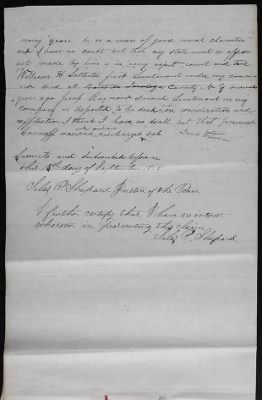 many years he is a man of good moral character
and I have no doubt but that any statement or affidavit
made by him is in every respect correct and that
William H. first Lieutenant under my command
died at Saratoga County N.Y. several
years ago Raymond second Lieutenant in my
Company is reported to be dead, on consideration and
reflection I think I have no doubt but that
received his discharge
Sworn to and Subscribed before
this day of September
Silas P. Shepard Justice of the Peace
I further certify that I have no interest
whatever in prosecuting this claim
Silas P. Shepard